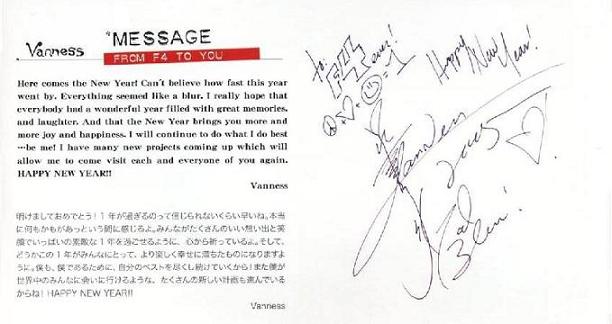 Vanness
"MESSAGE
FROM F4 TO YOU
Here comes the New Year! Can't believe how fast this year
went by. Everything seemed like a blur. I really hope that
everybody had a wonderful year filled with great memories,
and laughter. And that the New Year brings you more and
more joy and happiness. I will continue to do what I do best
…be me! I have many new projects coming up which will
allow me to come visit each and everyone of you again.
HAPPY NEW YEAR!!
Vanness
明けましておめでとう！1年が過ぎるのって信じられないくらい早いね。本当
に何もかもがあっという間に感じるよ。みんながたくさんのいい想い出と笑
顔でいっぱいの素敵な1年を過ごせるように、心から祈っているよ。そして、
どうかこの1年がみんなにとって、より楽しく幸せに満ちたものになりますよ
うに。僕も、僕であるために、自分のベストを尽くし続けていくから！また僕が
世界中のみんなに会いに行けるような、たくさんの新しい計画も進んでいる
からね！HAPPY NEW YEAR!!
Vanness
to:
Happy New Year!
Vanness
God
Bless!